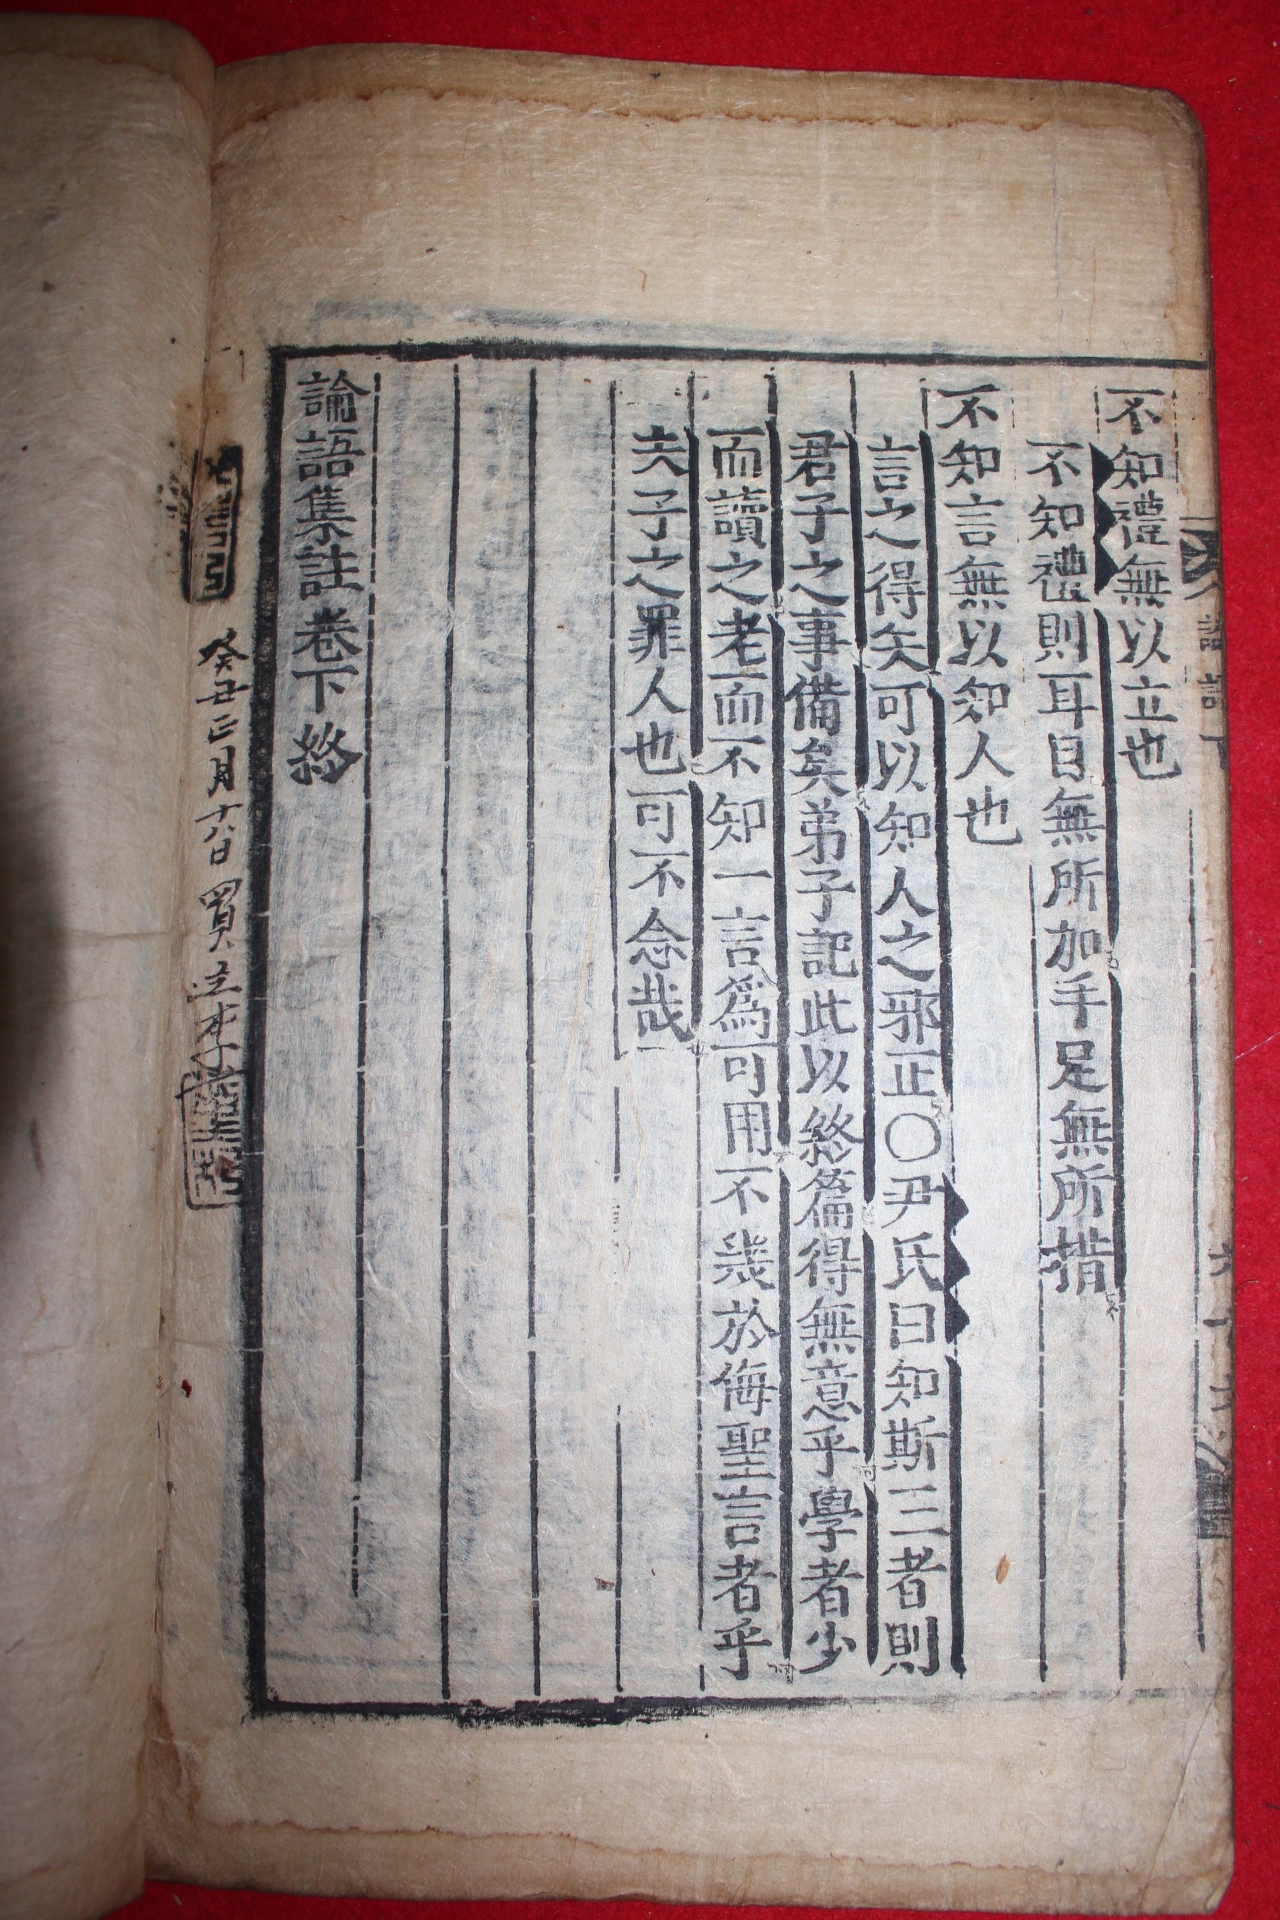 不知禮無以立也
不知禮則耳目無所加手足無所措
不知言無以知人也
言之得失可以知人之邪正〇尹氏曰知斯三者則
君子之事備矣弟子記此以終篇得無意乎學者少
而讀之老而不知一言爲可用不幾於侮聖言者乎
夫子之罪人也可不念哉
論語集註卷下終
癸丑正月十八日買